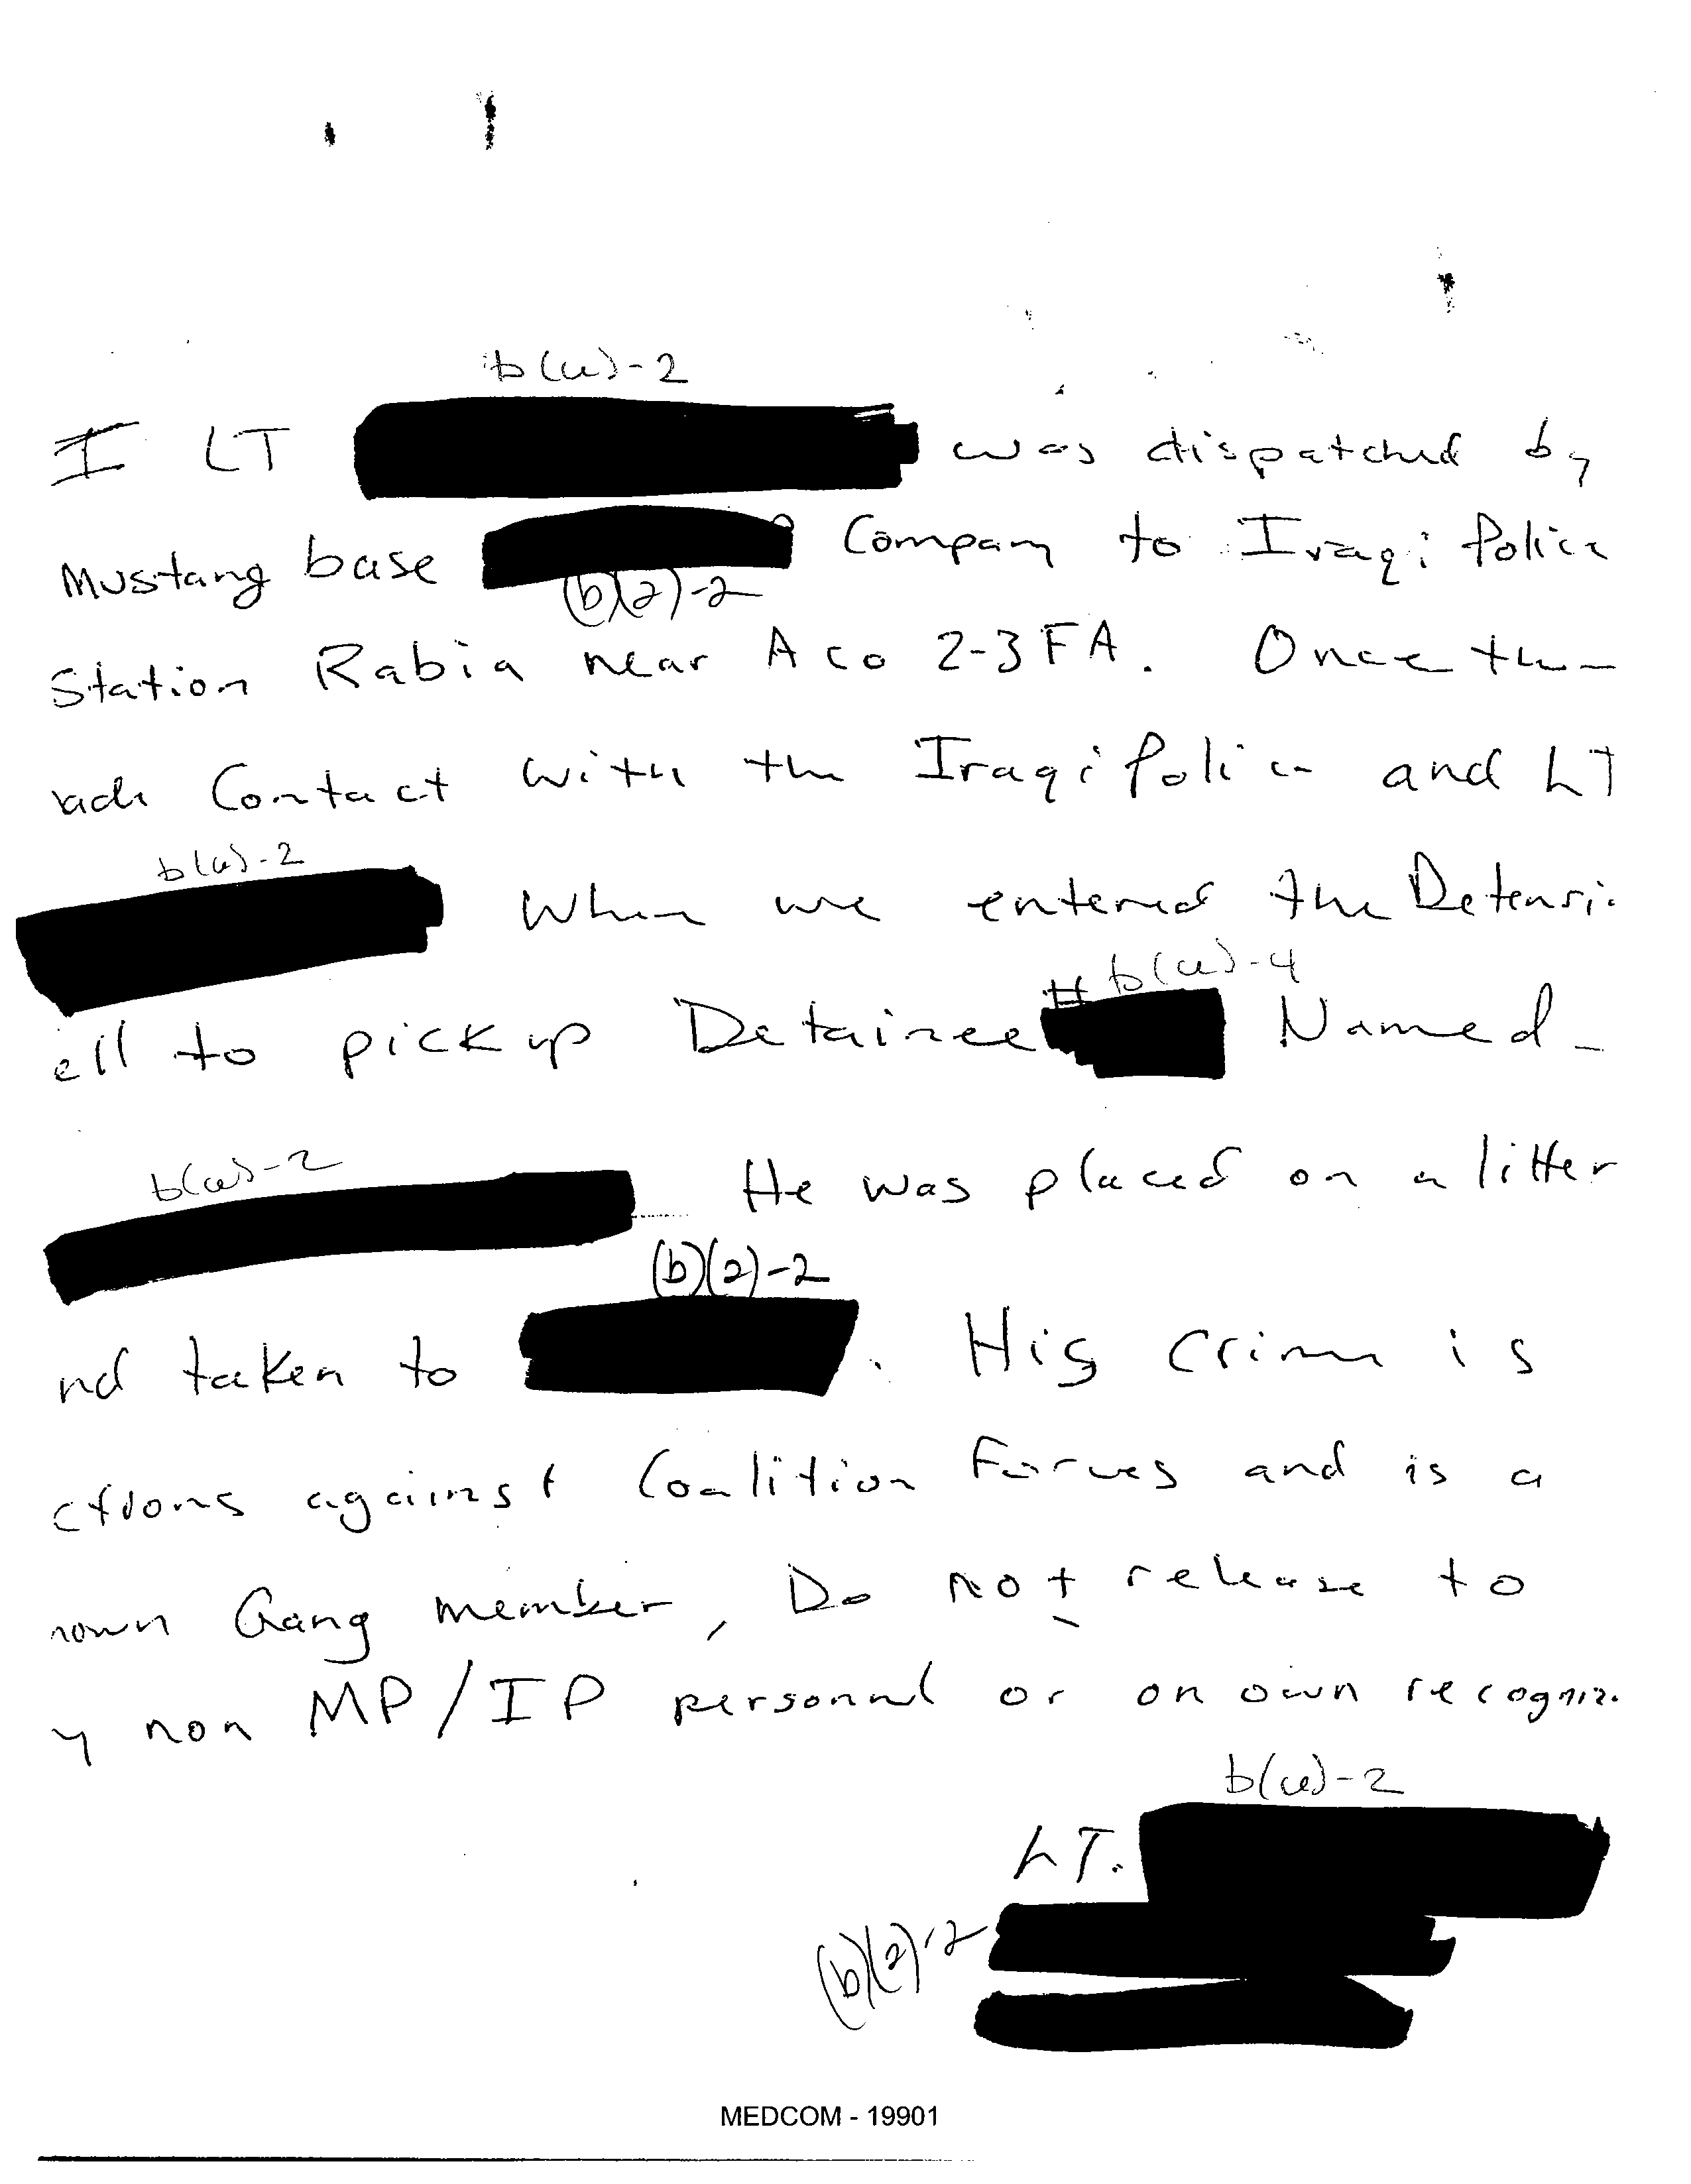 b(6)-2
I LT was dispatched by
Mustang base Company to Iraqi Police
(b)(2)-2
Station Rabia near A co 2-3 FA. Once th
ade Contact with the Iraqi Police and LT
b(6)-2
When we entered the Detensi
b(6)-4
ell to pick up Detainee # Named-
b(6)-2
He was placed on a litter
(b)(2)-2
nd taken to . His crime is
ctions against Coalition Forces and is a
nown Gang member, Do not release to
y non MP/IP personnel or on own recogniz
b(6)-2
LT.
(b)(2)-2
MEDCOM - 19901